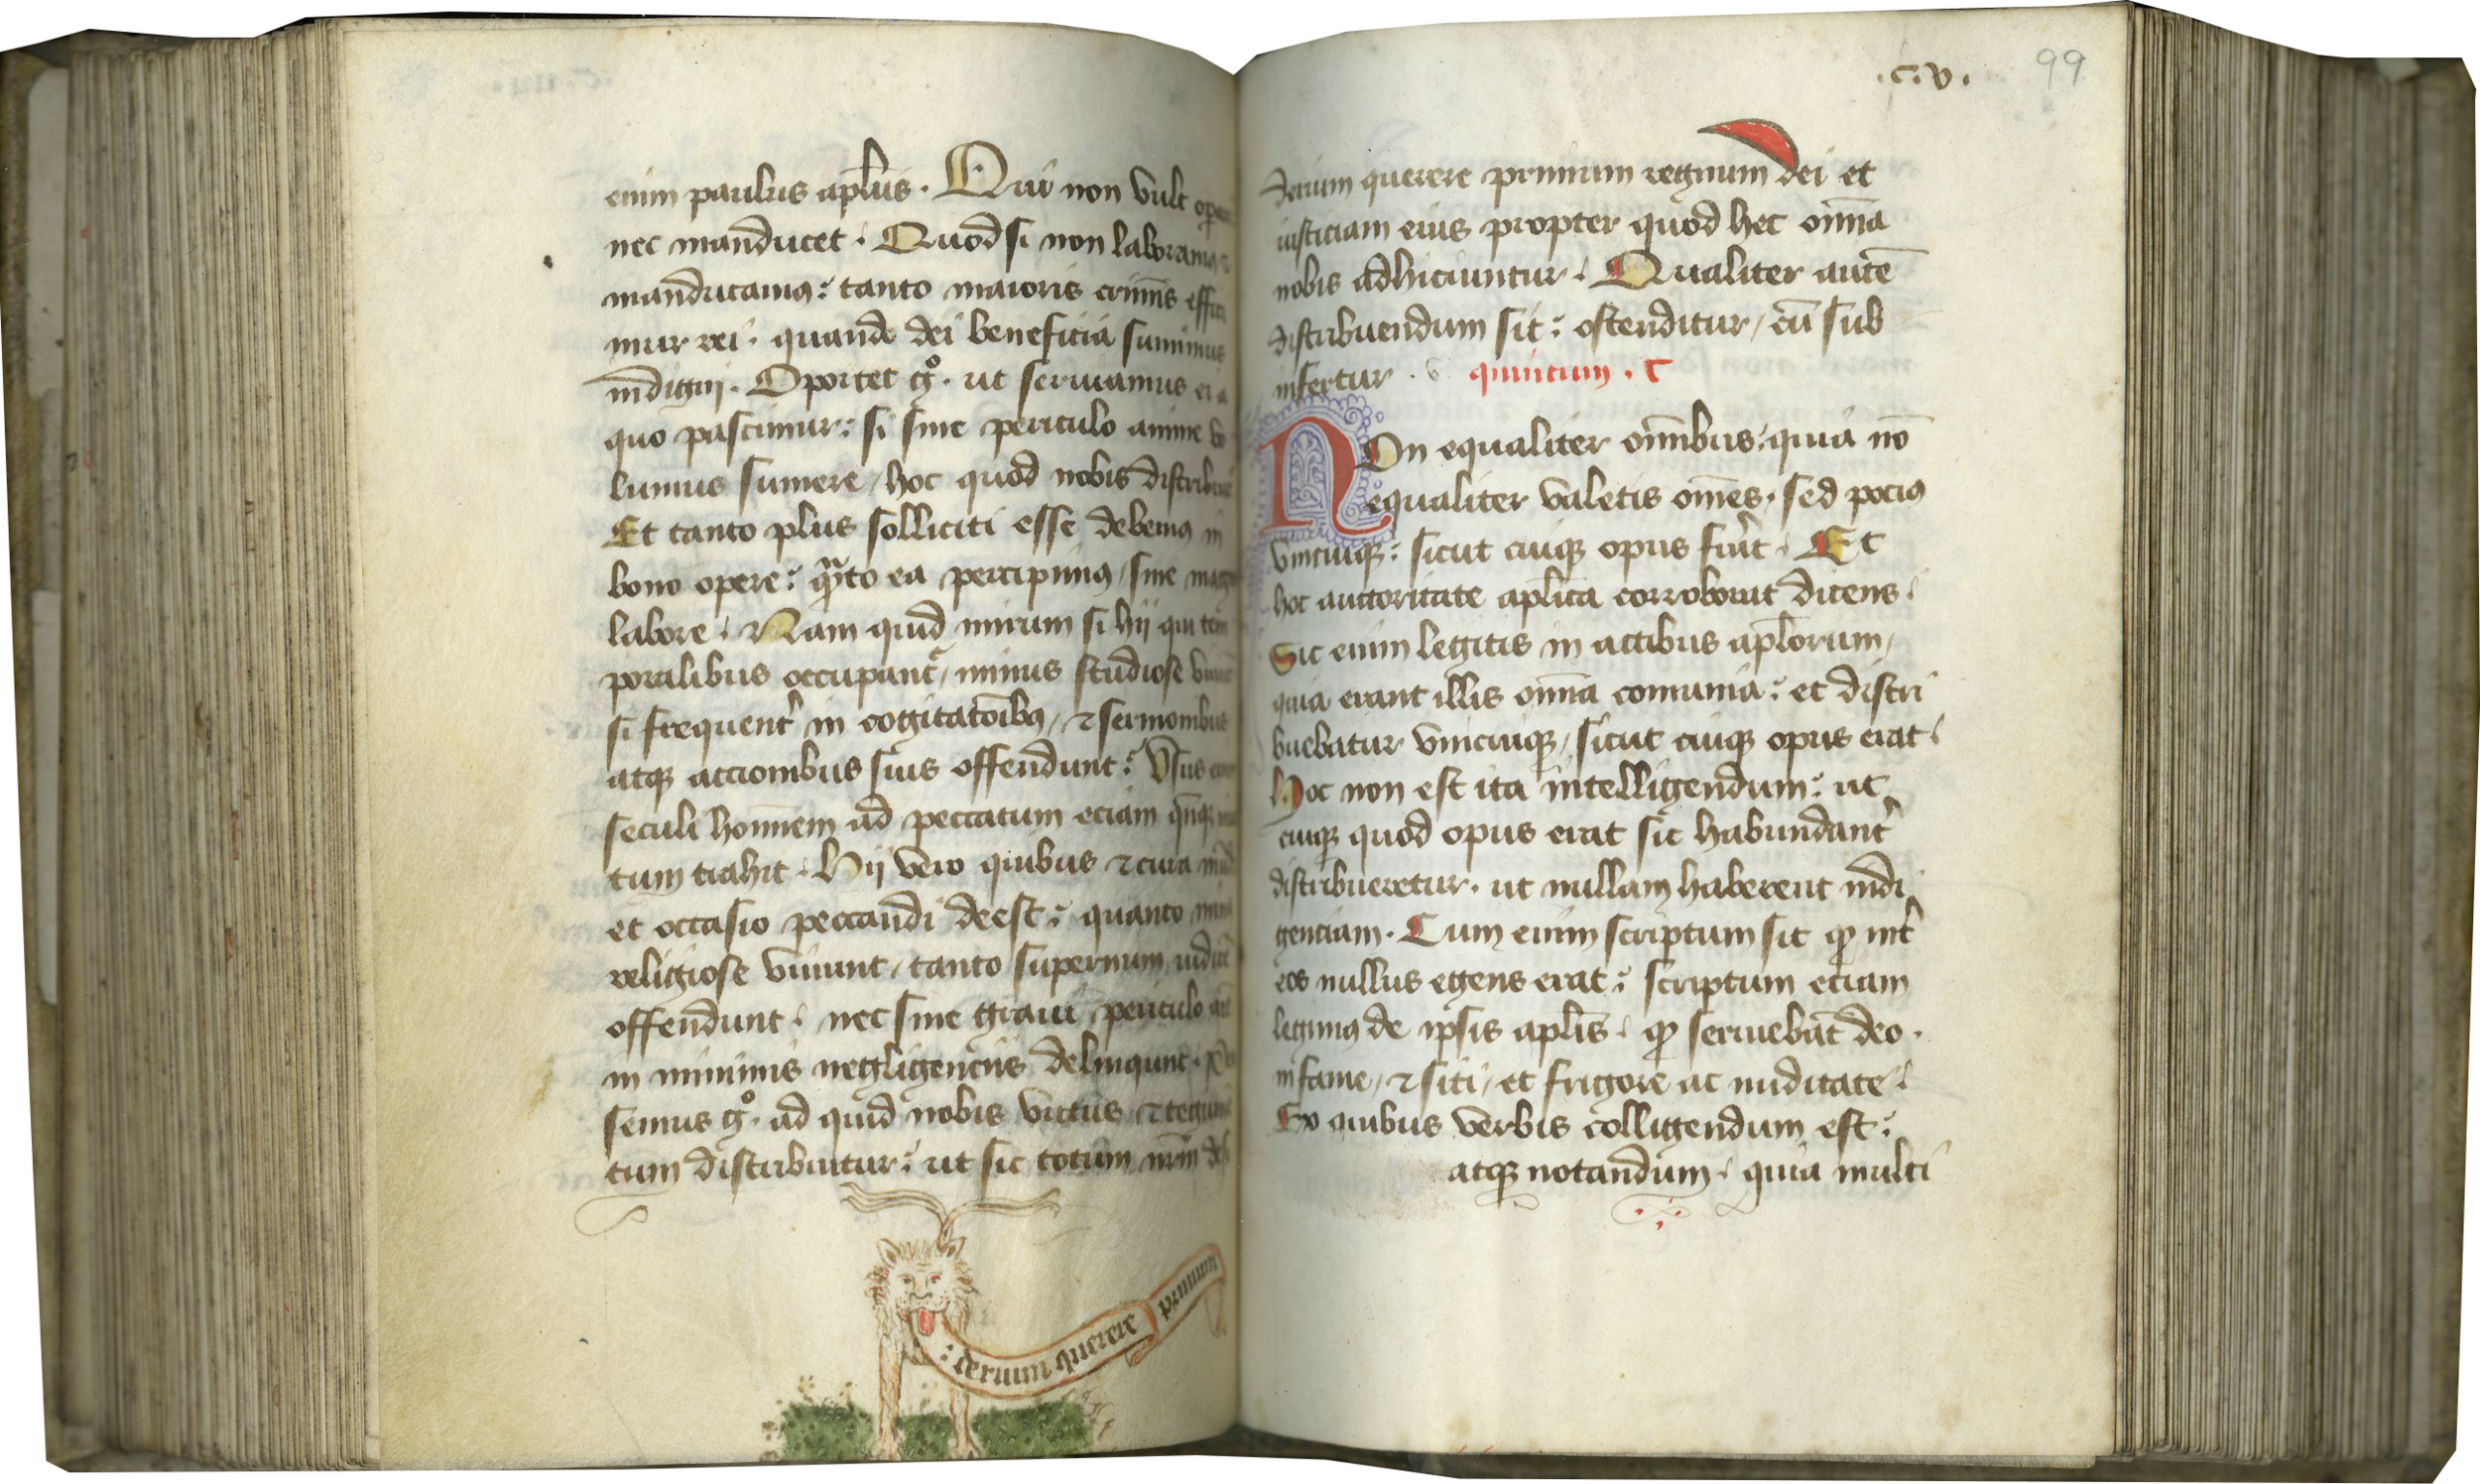 enim paulus apl̄us. Qui non vult
nec manducet. Quod si non laboramꝯ
manducamꝯ: tanto maioris crimīs effici
mur rei. quando dei beneficia sumimus
indigni. Oportet gͦ. ut seruiamus ei a
quo pascimur: si sine periculo anime vo
lumus sumere / hoc quod nobis distribui
Et tanto plus solliciti esse debemꝯ in
bono opere: qͣnto ea percipimꝯ / sine mag
labore. Nam quid mirum si hij qui tem
poralibus occupant᷑ / minus studiose viuūt
si frequent᷑ in cogitatōibꝯ / ⁊ sermonibus
atqꝫ accionibus suis offendunt: Vsus
seculi hominem ad peccatum eciam
tum trahit. Hij vero quibus ⁊ cura
et occasio peccandi deest: quanto
religiose viuunt / tanto supernum iudicē
offendunt. nec sine graui periculo
in minimis negligencijs delinqunt.
semus gͦ. ad quid nobis victus ⁊ tegum̄
tum distribuitur: ut sic totum nr̄m
: derium querere primum
.c.v.
99
derium querere primum regnum dei et
iusticiam eius propter quod hec om̄ia
nobis adhiciuntur. Qualiter autē
distribuendum sit: ostenditur / cū sub
infertur. quintum. c
NOn equaliter om̄ibus: quia nō
equaliter valetis om̄es. sed pociꝯ
vnicuiqꝫ: sicut cuiqꝫ opus fuīt. Et
hoc auctoritate apl̄ica corroborat dicens.
Sic enim legitis in actibus apl̄orum /
quia erant illis om̄ia comunia: et distri
buebatur vnicuiqꝫ / sicut cuiqꝫ opus erat.
Hoc non est ita intelligendum: ut
cuiqꝫ quod opus erat sic habundant᷑
distribueretur. ut nullam haberent indi
genciam. Cum enim scriptum sit qꝫ int᷑
eos nullus egens erat: scriptum eciam
legimꝯ de ipsis apl̄is. qꝫ seruiebāt deo.
in fame / ⁊ siti / et frigore ac nuditate.
Ex quibus verbis colligendum est:
atqꝫ notandum. quia multi